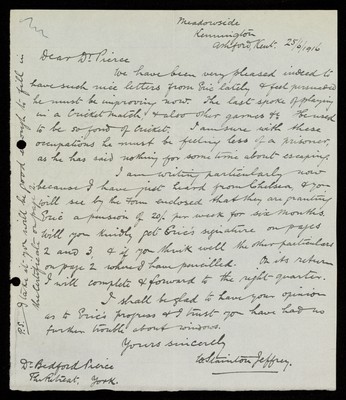 Meadowside
Kennington
Ashford, Kent. 25/6/1916
Dear Dr Pierce
We have been very pleased indeed to
have such nice letters from Eric lately & feel persuaded
he must be improving now. The last spoke of playing
in a Cricket match, & also other games &c He used
to be so fond of Cricket. I am sure with these
occupations he must be feeling less of a prisoner,
as he has said nothing for some time about escaping.
I am writing particularly now
because I have just heard from Chelsea, & you
will see by the form enclosed that they are granting
Eric a pension of 20/- per week for six months.
Will you kindly get Eric's signature on pages
2 and 3, & if you think well the other particulars
on page 2 where I have pencilled. On its return
I will complete & forward to the right quarter.
I shall be glad to have your opinion
as to Eric's progress & I trust you have had no
further trouble about windows.
Yours sincerely
W Stainton Jeffrey.
Dr Bedford Pierce
The Retreat, York.
P.S. I take it you will be good enough to fill in
the certificate on page